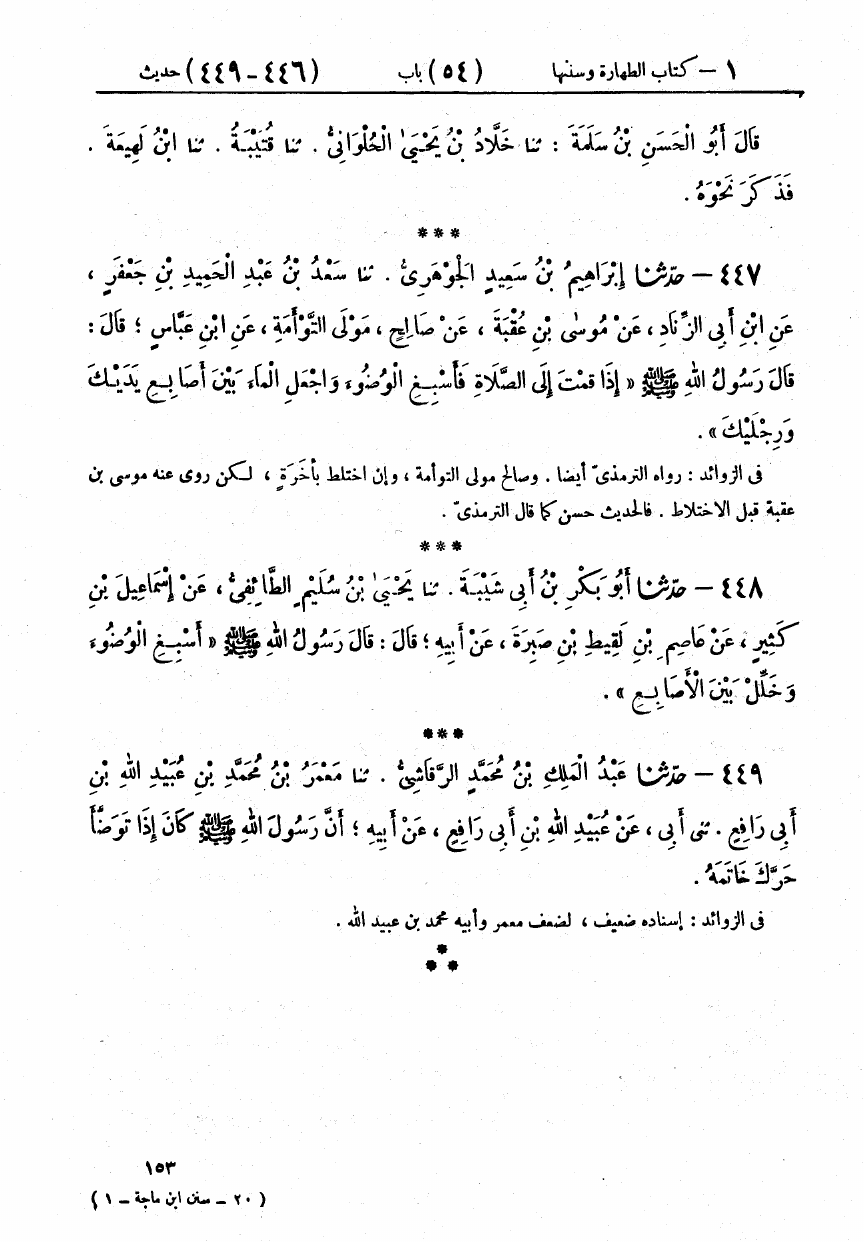 ١ – كتاب الطهارة وسننها (٥٤) باب (٤٤٦-٤٤٩) حديث
قَالَ أَبُو الْحَسَنِ بْنُ سَلَمَةَ : ثنا خَلَّادُ بْنُ يَحْيَىٰ الْحُلْوَانِىُّ . ثنا قُتَيْبَةُ . ثنا ابْنُ لَهِيعَةَ .
فَذَكَرَ نَحْوَهُ .
***
٤٤٧ – حدّثنا إِبْرَاهِيمُ بْنُ سَعِيدٍ الْجَوْهَرِىُّ . ثنا سَعْدُ بْنُ عَبْدِ الْحَمِيدِ بْنِ جَعْفَرٍ ،
عَنِ ابْنِ أَبِى الزِّنَادِ ، عَنْ مُوسَى بْنِ عُقْبَةَ ، عَنْ صَالِحٍ ، مَوْلَى التَّوْأَمَةِ ، عَنِ ابْنِ عَبَّاسٍ ؛ قَالَ :
قَالَ رَسُولُ اللهِ ﷺ « إِذَا قُمْتَ إِلَى الصَّلَاةِ فَأَسْبِغِ الْوُضُوءَ وَاجْعَلِ الْمَاءَ بَيْنَ أَصَابِعِ يَدَيْكَ
وَرِجْلَيْكَ » .
فى الزوائد : رواه الترمذىّ أيضا . وصالح مولى التوأمة ، وإن اختلط بأَخَرَةٍ ، لكن روى عنه موسى بن
عقبة قبل الاختلاط . فالحديث حسن كما قال الترمذىّ .
***
٤٤٨ – حدّثنا أَبُو بَكْرِ بْنُ أَبِى شَيْبَةَ . ثنا يَحْيَىٰ بْنُ سُلَيْمٍ الطَّائِفِىُّ ، عَنْ إِسْمَاعِيلَ بْنِ
كَثِيرٍ ، عَنْ عَاصِمِ بْنِ لَقِيطِ بْنِ صَبِرَةَ ، عَنْ أَبِيهِ ؛ قَالَ : قَالَ رَسُولُ اللهِ ﷺ « أَسْبِغِ الْوُضُوءَ
وَخَلِّلْ بَيْنَ الْأَصَابِعِ » .
***
٤٤٩ – حدّثنا عَبْدُ الْمَلِكِ بْنُ مُحَمَّدٍ الرَّقَاشِىُّ . ثنا مَعْمَرُ بْنُ مُحَمَّدِ بْنِ عُبَيْدِ اللهِ بْنِ
أَبِى رَافِعٍ . ثنى أَبِى ، عَنْ عُبَيْدِ اللهِ بْنِ أَبِى رَافِعٍ ، عَنْ أَبِيهِ ؛ أَنَّ رَسُولَ اللهِ ﷺ كَانَ إِذَا تَوَضَّأَ
حَرَّكَ خَاتَمَهُ .
فى الزوائد : إسناده ضعيف ، لضعف معمر وأبيه محمد بن عبيد الله .
*
* *
١٥٣
( ٢٠ – سنن ابن ماجة – ١ )